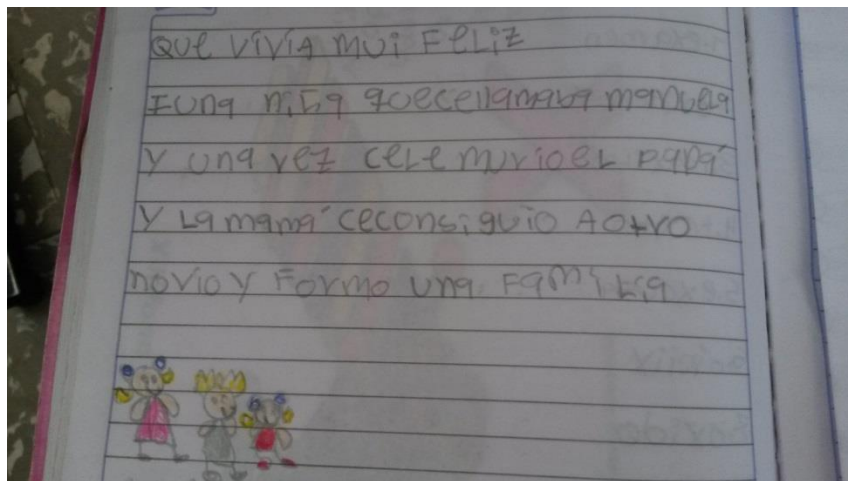 Que vivia mui Feliz
I una niña quecellamaba manuela
y una vez cele murioel papá
y La mamá ceconsiguio A otro
novio y Formo una Familia